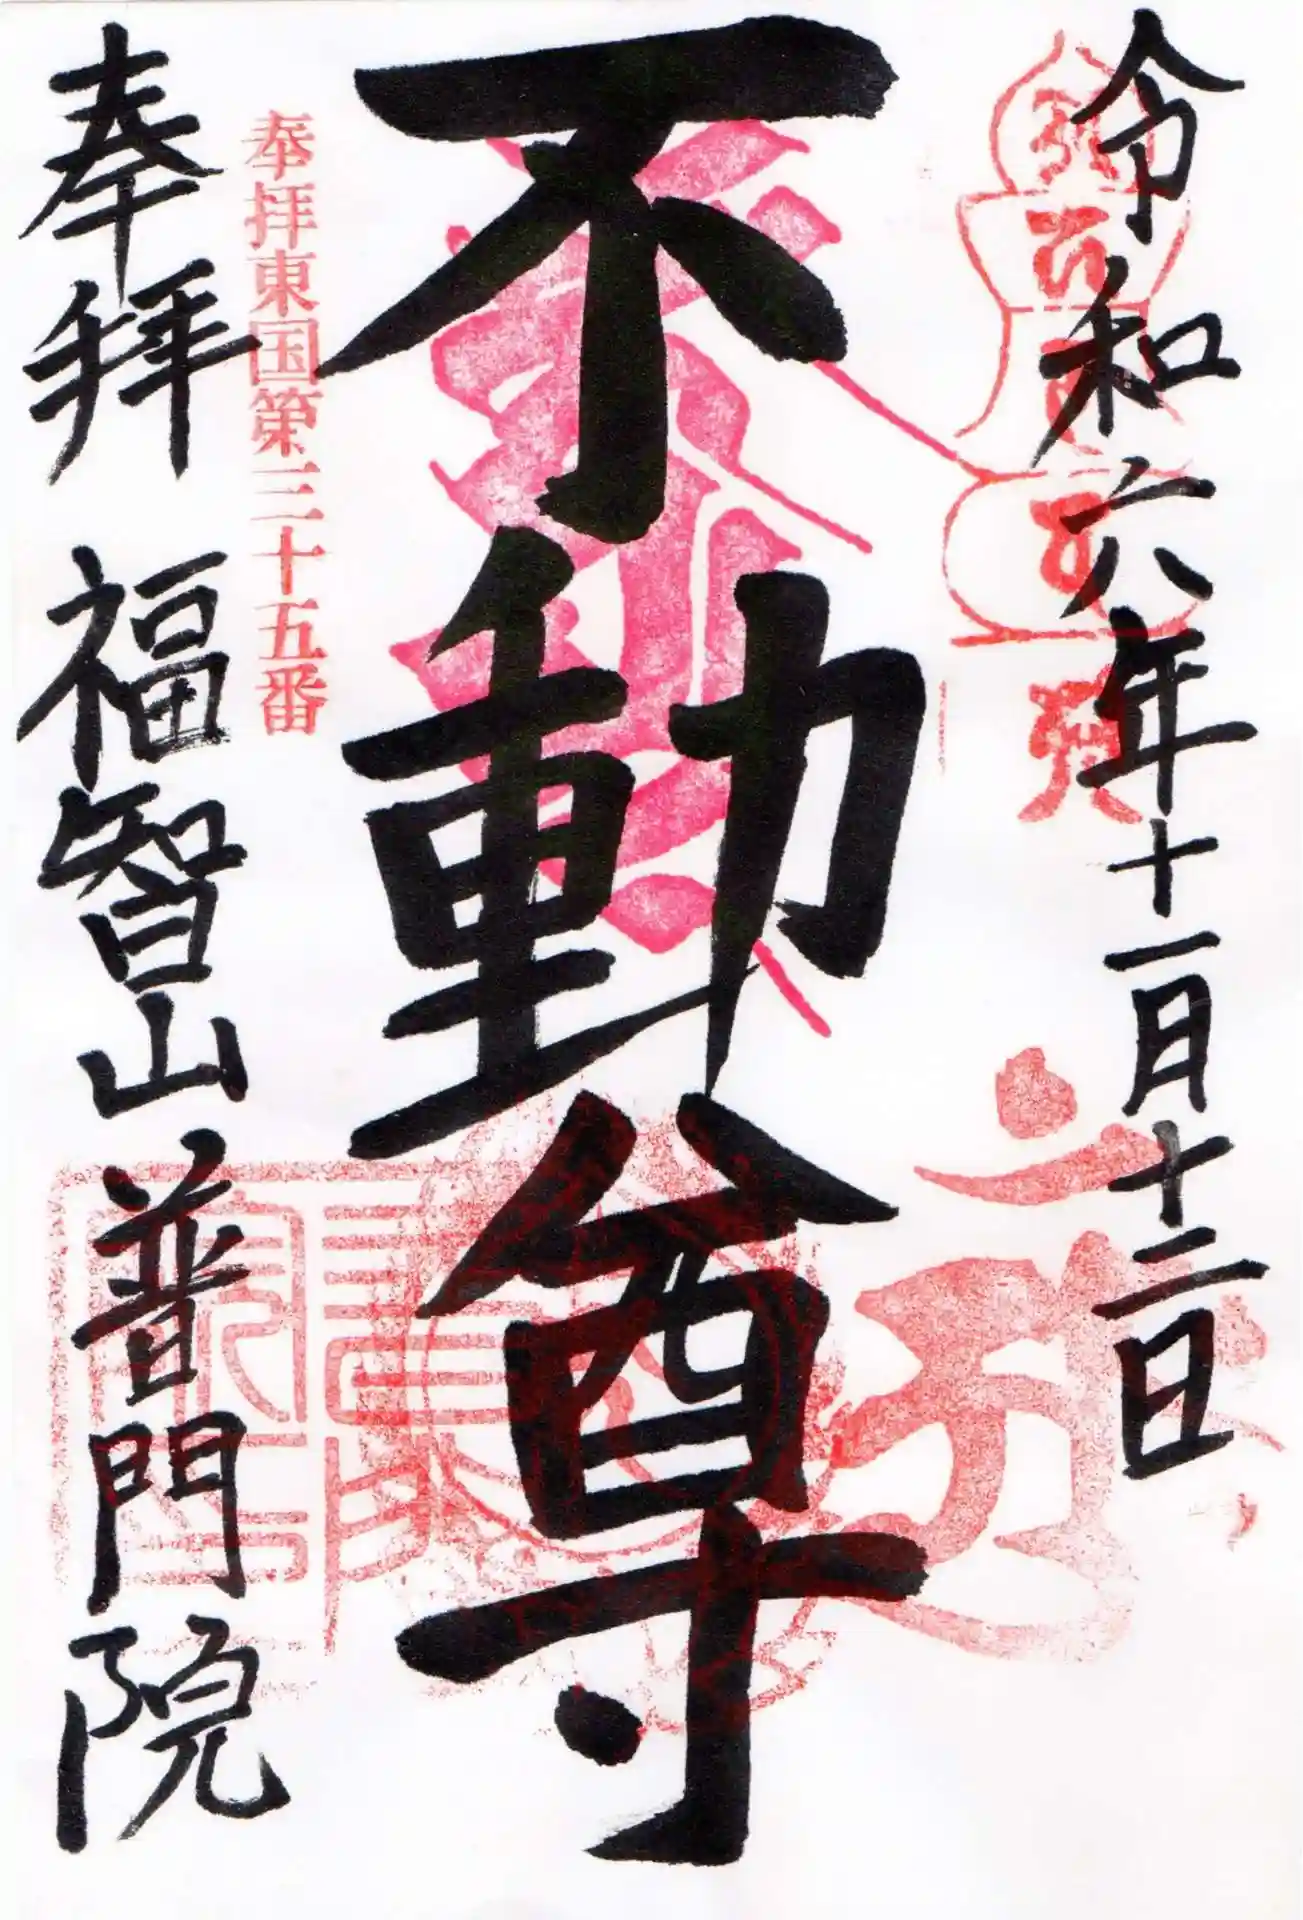 令和六年十一月十二日
不動尊
奉拝東国第三十五番
奉拝 福智山普門院